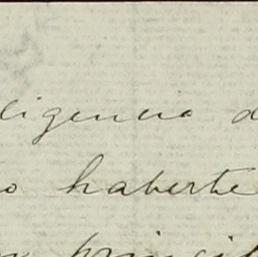 ligencia d
o haberte
principi